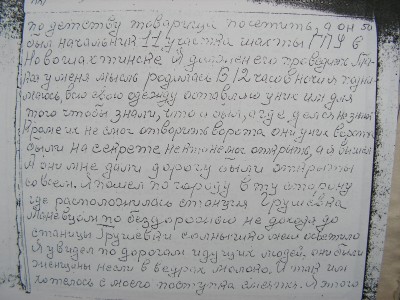 по детству товарища посетить, а он 50
был начальник 11 участка шахты ГПУ в
Новошахтинске я должен его проводить
у меня мысль родилась В 12 часов ночи я подни
маюсь, всю свою одежду оставляю у них им для
того чтобы знали, что я был, а где делся не знают
Кроме их не смог отворить ворота они у них ворота
были на секрете никто не мог открыть, а я вышел
и они мне дали дорогу были открыты
совсем. Я пошел по городу в ту сторону
где расположилась станция Грушевка
по бездорожью не доходя до
станицы Грушевки солнышко мне светило
Я увидел по дорогам идущих людей, они были
женщины несли в ведрах молоко, И так им
хотелось с моего поступка Я этого